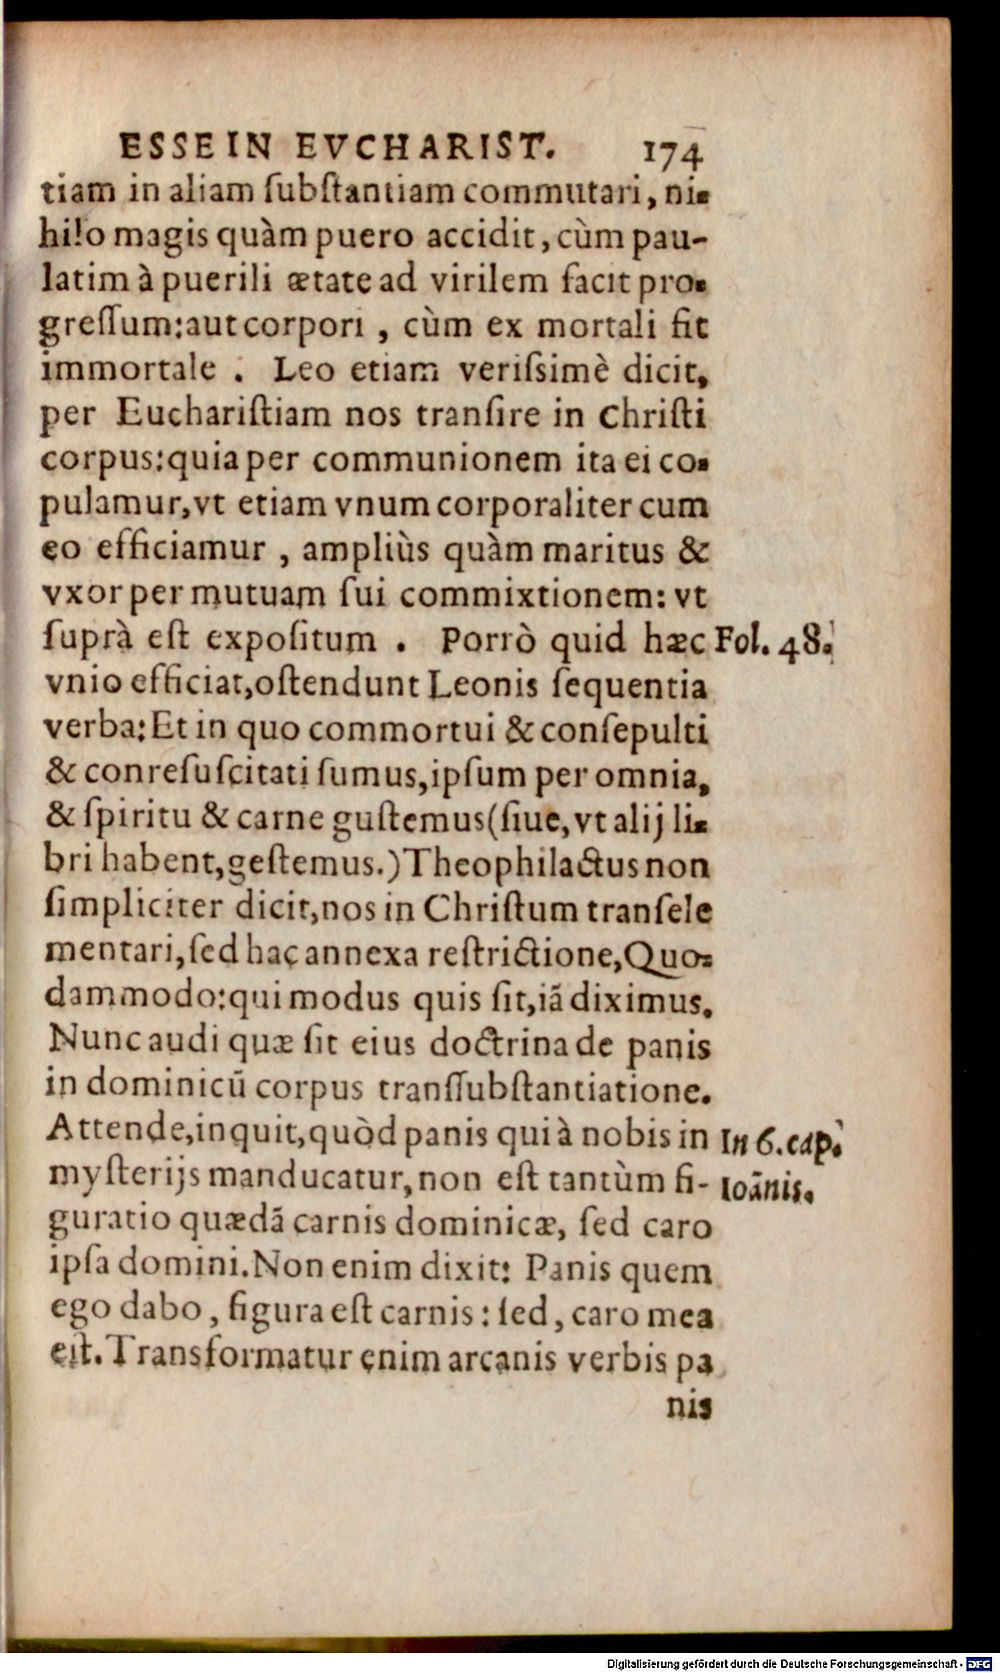 ESSE IN EVCHARIST. 174
tiam in aliam ſubſtantiam commutari, ni-
hilo magis quàm puero accidit, cùm pau-
latim à puerili ætate ad virilem facit pro-
greſſum: aut corpori, cùm ex mortali fit
immortale. Leo etiam veriſsimè dicit,
per Euchariſtiam nos tranſire in Chriſti
corpus: quia per communionem ita ei co-
pulamur, vt etiam vnum corporaliter cum
eo efficiamur, ampliùs quàm maritus &
vxor per mutuam ſui commixtionem: vt
ſuprà eſt expoſitum. Porrò quid hæc Fol. 48.
vnio efficiat, oſtendunt Leonis ſequentia
verba: Et in quo commortui & conſepulti
& conreſuſcitati ſumus, ipſum per omnia,
& ſpiritu & carne guſtemus (ſiue, vt alij li-
bri habent, geſtemus.) Theophilactus non
ſimpliciter dicit, nos in Chriſtum tranſele
mentari, ſed hac annexa reſtrictione, Quo-
dammodo: qui modus quis ſit, iã diximus.
Nunc audi quæ ſit eius doctrina de panis
in dominicũ corpus tranſſubſtantiatione.
Attende, inquit, quòd panis qui à nobis in In 6. cap.
myſterijs manducatur, non eſt tantùm fi- Ioãnis.
guratio quædã carnis dominicæ, ſed caro
ipſa domini. Non enim dixit: Panis quem
ego dabo, figura eſt carnis: ſed, caro mea
eſt. Transformatur enim arcanis verbis pa
nis
Digitalisierung gefördert durch die Deutsche Forschungsgemeinschaft - DFG